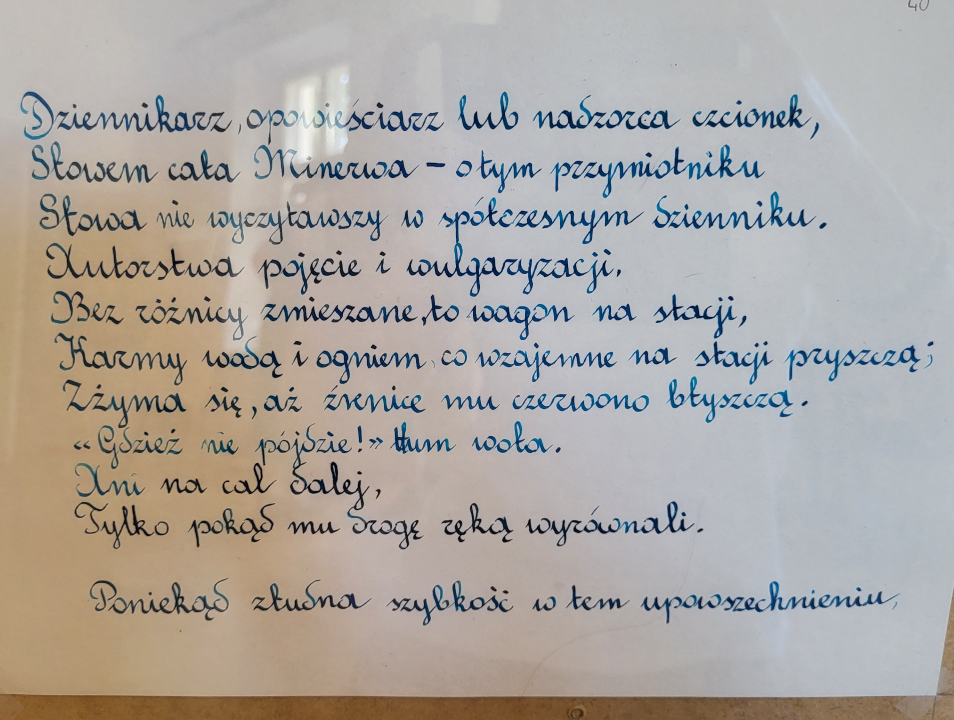 40
Dziennikarz, opowieściarz lub nadzorca czcionek,
Słowem cała Minerwa – o tym przymiotniku
Słowa nie wyczytawszy w spółczesnym dzienniku.
Autorstwa pojęcie i wulgaryzacji,
Bez różnicy zmieszane, to wagon na stacji,
Karmy wodą i ogniem, co wzajemne na stacji pryszczą;
Zżyma się, aż źrenice mu czerwono błyszczą.
«Gdzież nie pójdzie!» tłum woła.
Ani na cal dalej,
Tylko pokąd mu drogę ręką wyrównali.
Poniekąd złudna szybkość w tem upowszechnieniu,